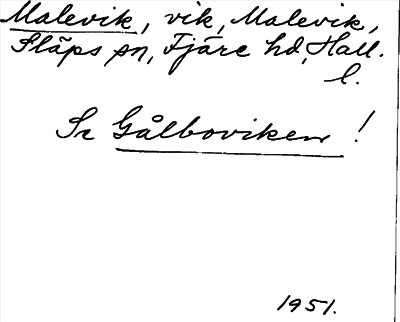 Malevik, vik, Malevik,
Släps sn, Fjäre hd, Hall.
l.
Se Gålboviken!
1951.